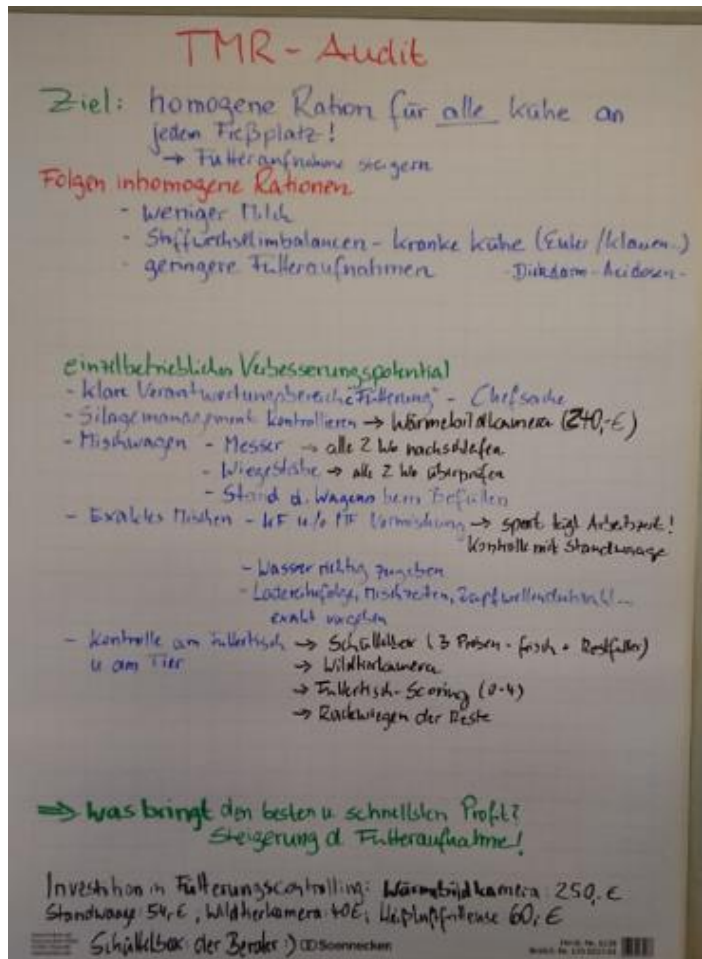 TMR - Audit
Ziel: homogene Ration für alle Kühe an
jedem Freßplatz!
→ Futteraufnahme steigern
Folgen inhomogene Rationen
- weniger Milch
- Stoffwechselimbalancen - kranke Kühe (Euter/Klauen..)
- geringere Futteraufnahmen - Dickdarm-Acidosen -
einzelbetriebliches Verbesserungspotential
- klare Verantwortungsbereiche "Fütterung" - Chefsache
- Silagemanagement kontrollieren → Wärmebildkamera (240,-€)
- Mischwagen - Messer → alle 2 Wo nachschleifen
- Wiegestäbe → alle 2 Wo überprüfen
- Stand d. Wagens beim Befüllen
- Exaktes Mischen - KF u/o MF Vormischung → spart tägl Arbeitszeit!
Kontrolle mit Standwaage
- Wasser richtig zugeben
- Ladereihefolge, Mischzeiten, Zapfwellendrehzahl...
exakt vorgeben
- Kontrolle am Futtertisch → Schüttelbox (3 Proben - frisch + Restfutter)
u am Tier → Wildtierkamera
→ Futtertisch-Scoring (0-4)
→ Rückwiegen der Reste
⇒ was bringt den besten u schnellsten Profit?
Steigerung d Futteraufnahme!
Investition in Fütterungscontrolling: Wärmebildkamera 250,-€
Standwaage 54,-€, Wildtierkamera 40€, Heißluftfriteuse 60,-€
Schüttelbox: der Berater :) Soennecken